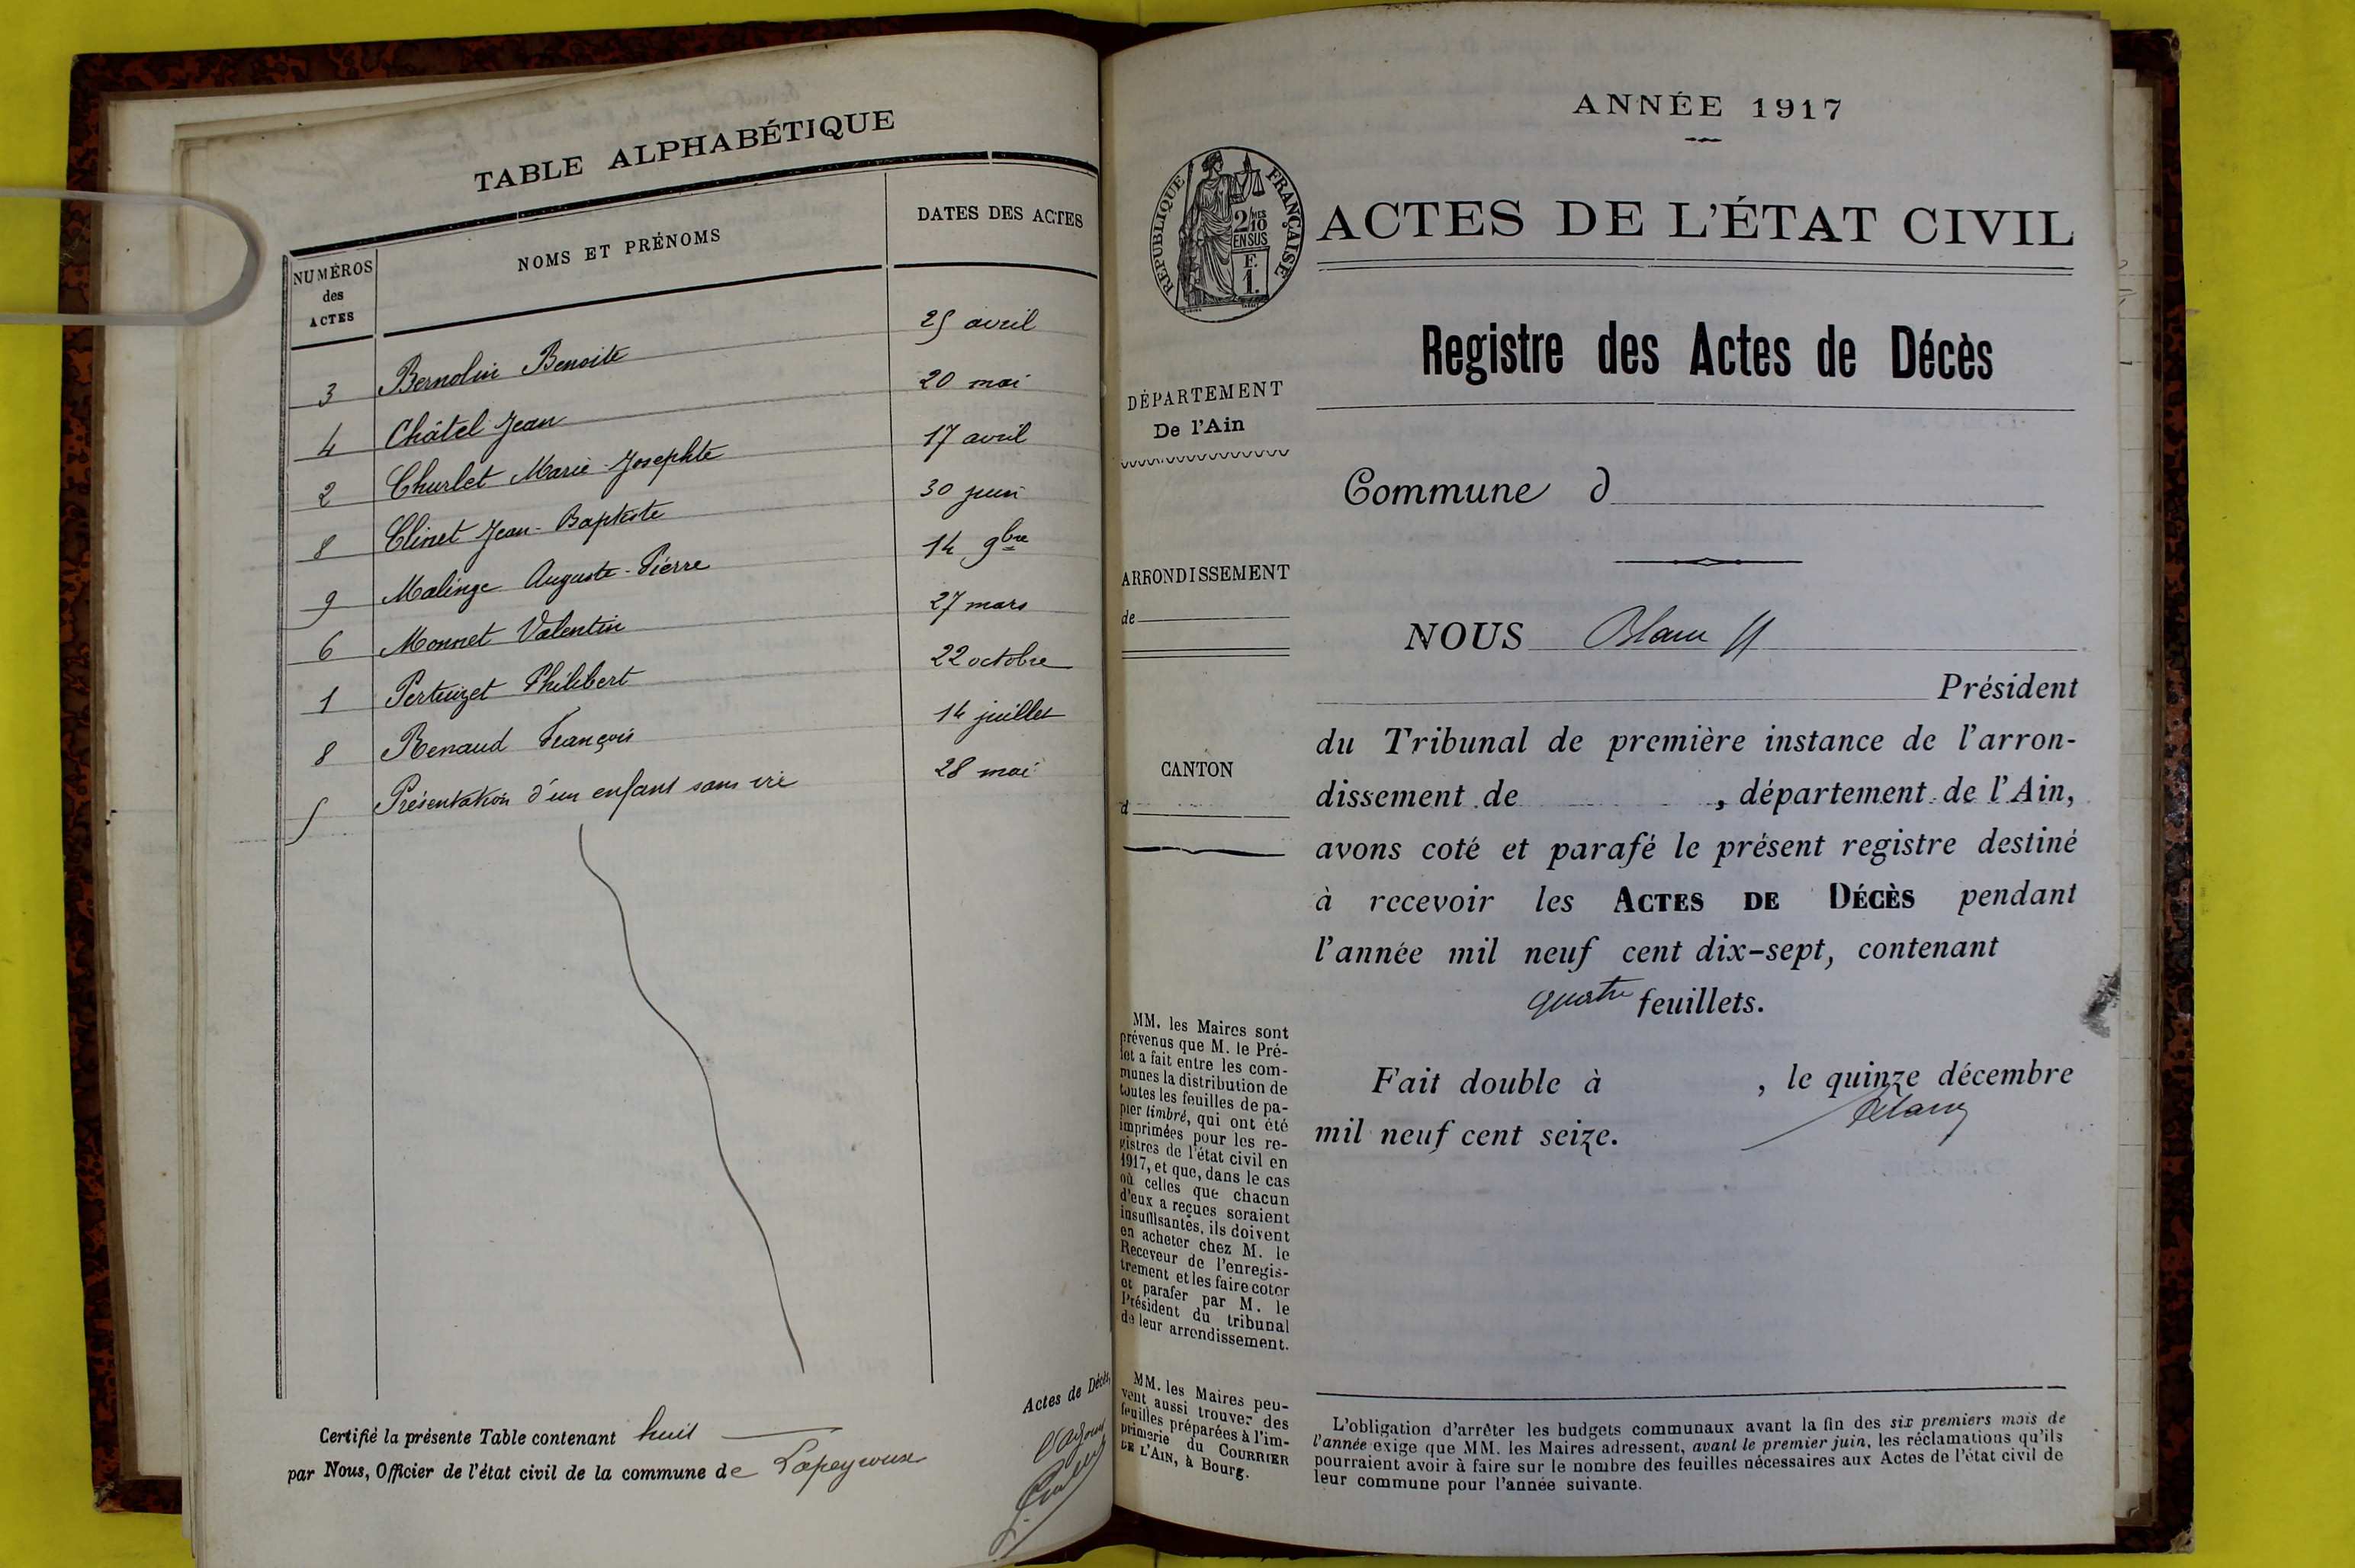 TABLE ALPHABÉTIQUE
NUMÉROS des ACTES
NOMS ET PRÉNOMS
DATES DES ACTES
3 Bernolin Benoite 25 avril
4 Châtel Jean 20 mai
2 Churlet Marie-Josephte 17 avril
8 Clinet Jean-Baptiste 30 juin
9 Malinge Auguste-Pierre 14 9bre
6 Monnet Valentin 27 mars
1 Pertuizet Philibert 22 octobre
8 Renaud François 14 juillet
5 Présentation d'un enfant sans vie 28 mai
Certifié la présente Table contenant huit
Actes de Décès,
par Nous, Officier de l'état civil de la commune de Lapeyrouse
ANNÉE 1917
RÉPUBLIQUE FRANÇAISE
2/10 MES
EN SUS
F.
1.
ACTES DE L'ÉTAT CIVIL
Registre des Actes de Décès
DÉPARTEMENT
De l'Ain
Commune d
ARRONDISSEMENT
de
CANTON
d
NOUS
Président
du Tribunal de première instance de l'arron-
dissement de , département de l'Ain,
avons coté et parafé le présent registre destiné
à recevoir les ACTES DE DÉCÈS pendant
l'année mil neuf cent dix-sept, contenant
quatre feuillets.
Fait double à , le quinze décembre
mil neuf cent seize.
MM. les Maires sont
prévenus que M. le Pré-
fet a fait entre les com-
munes la distribution de
toutes les feuilles de pa-
pier timbré, qui ont été
imprimées pour les re-
gistres de l'état civil en
1917, et que, dans le cas
où celles que chacun
d'eux a reçues seraient
insuffisantes, ils doivent
en acheter chez M. le
Receveur de l'enregis-
trement et les faire coter
et parafer par M. le
Président du tribunal
de leur arrondissement.
MM. les Maires peu-
vent aussi trouver des
feuilles préparées à l'im-
primerie du COURRIER
DE L'AIN, à Bourg.
L'obligation d'arrêter les budgets communaux avant la fin des six premiers mois de
l'année exige que MM. les Maires adressent, avant le premier juin, les réclamations qu'ils
pourraient avoir à faire sur le nombre des feuilles nécessaires aux Actes de l'état civil de
leur commune pour l'année suivante.